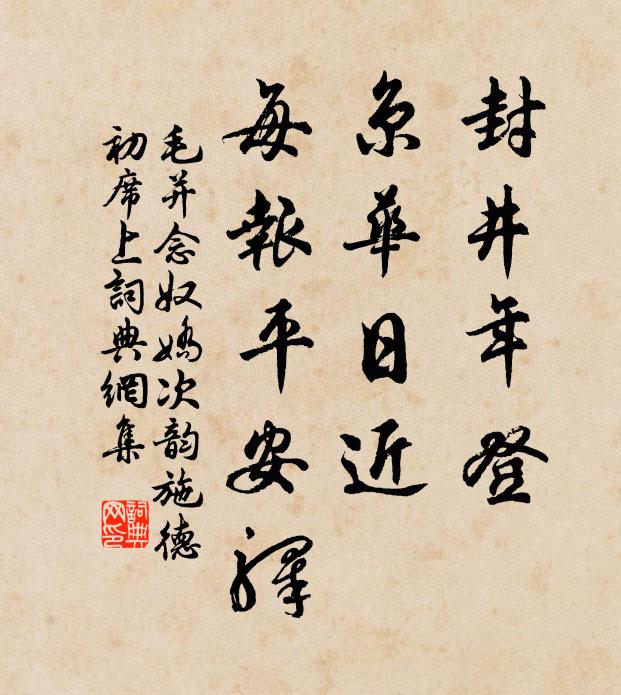 封井年登
京華日近
每報平安驛
毛并念奴嬌次韵施德
初席上詞典網集
詞典网印